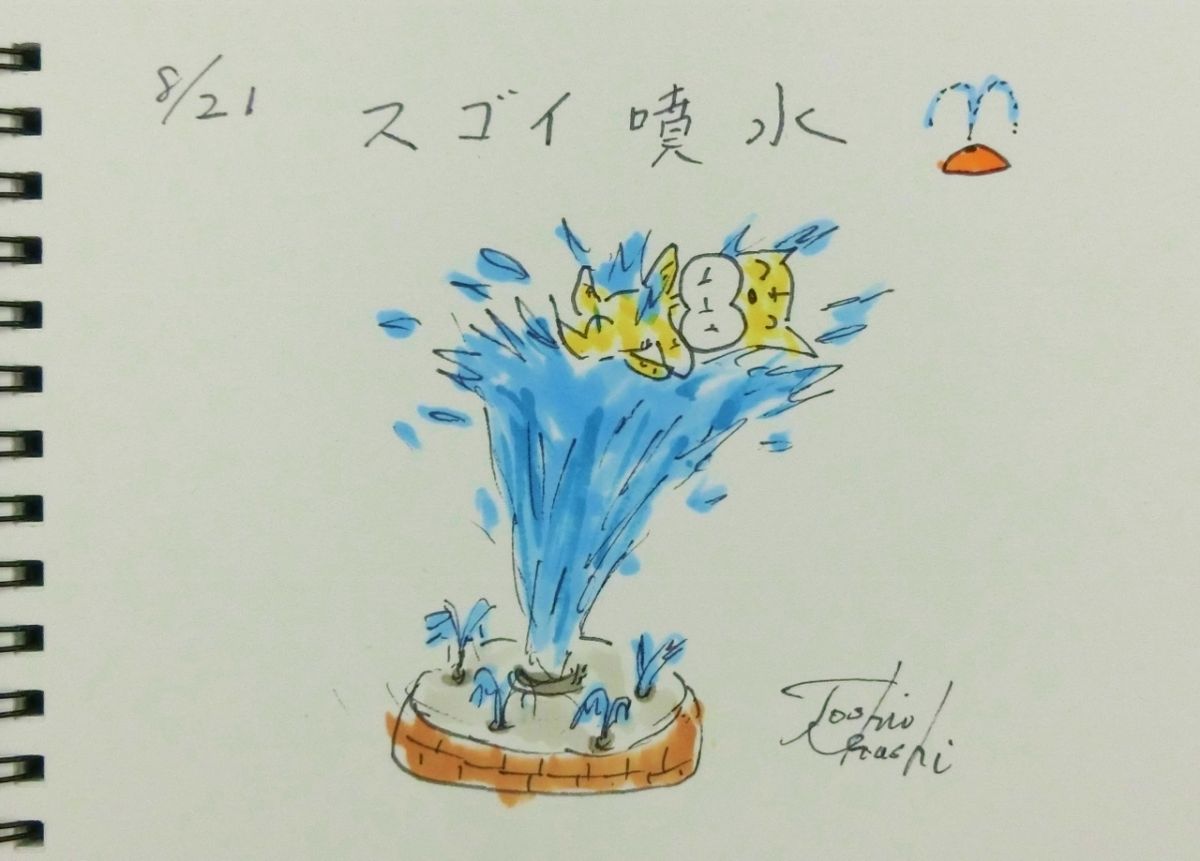 8/21 スゴイ噴水
Toshio